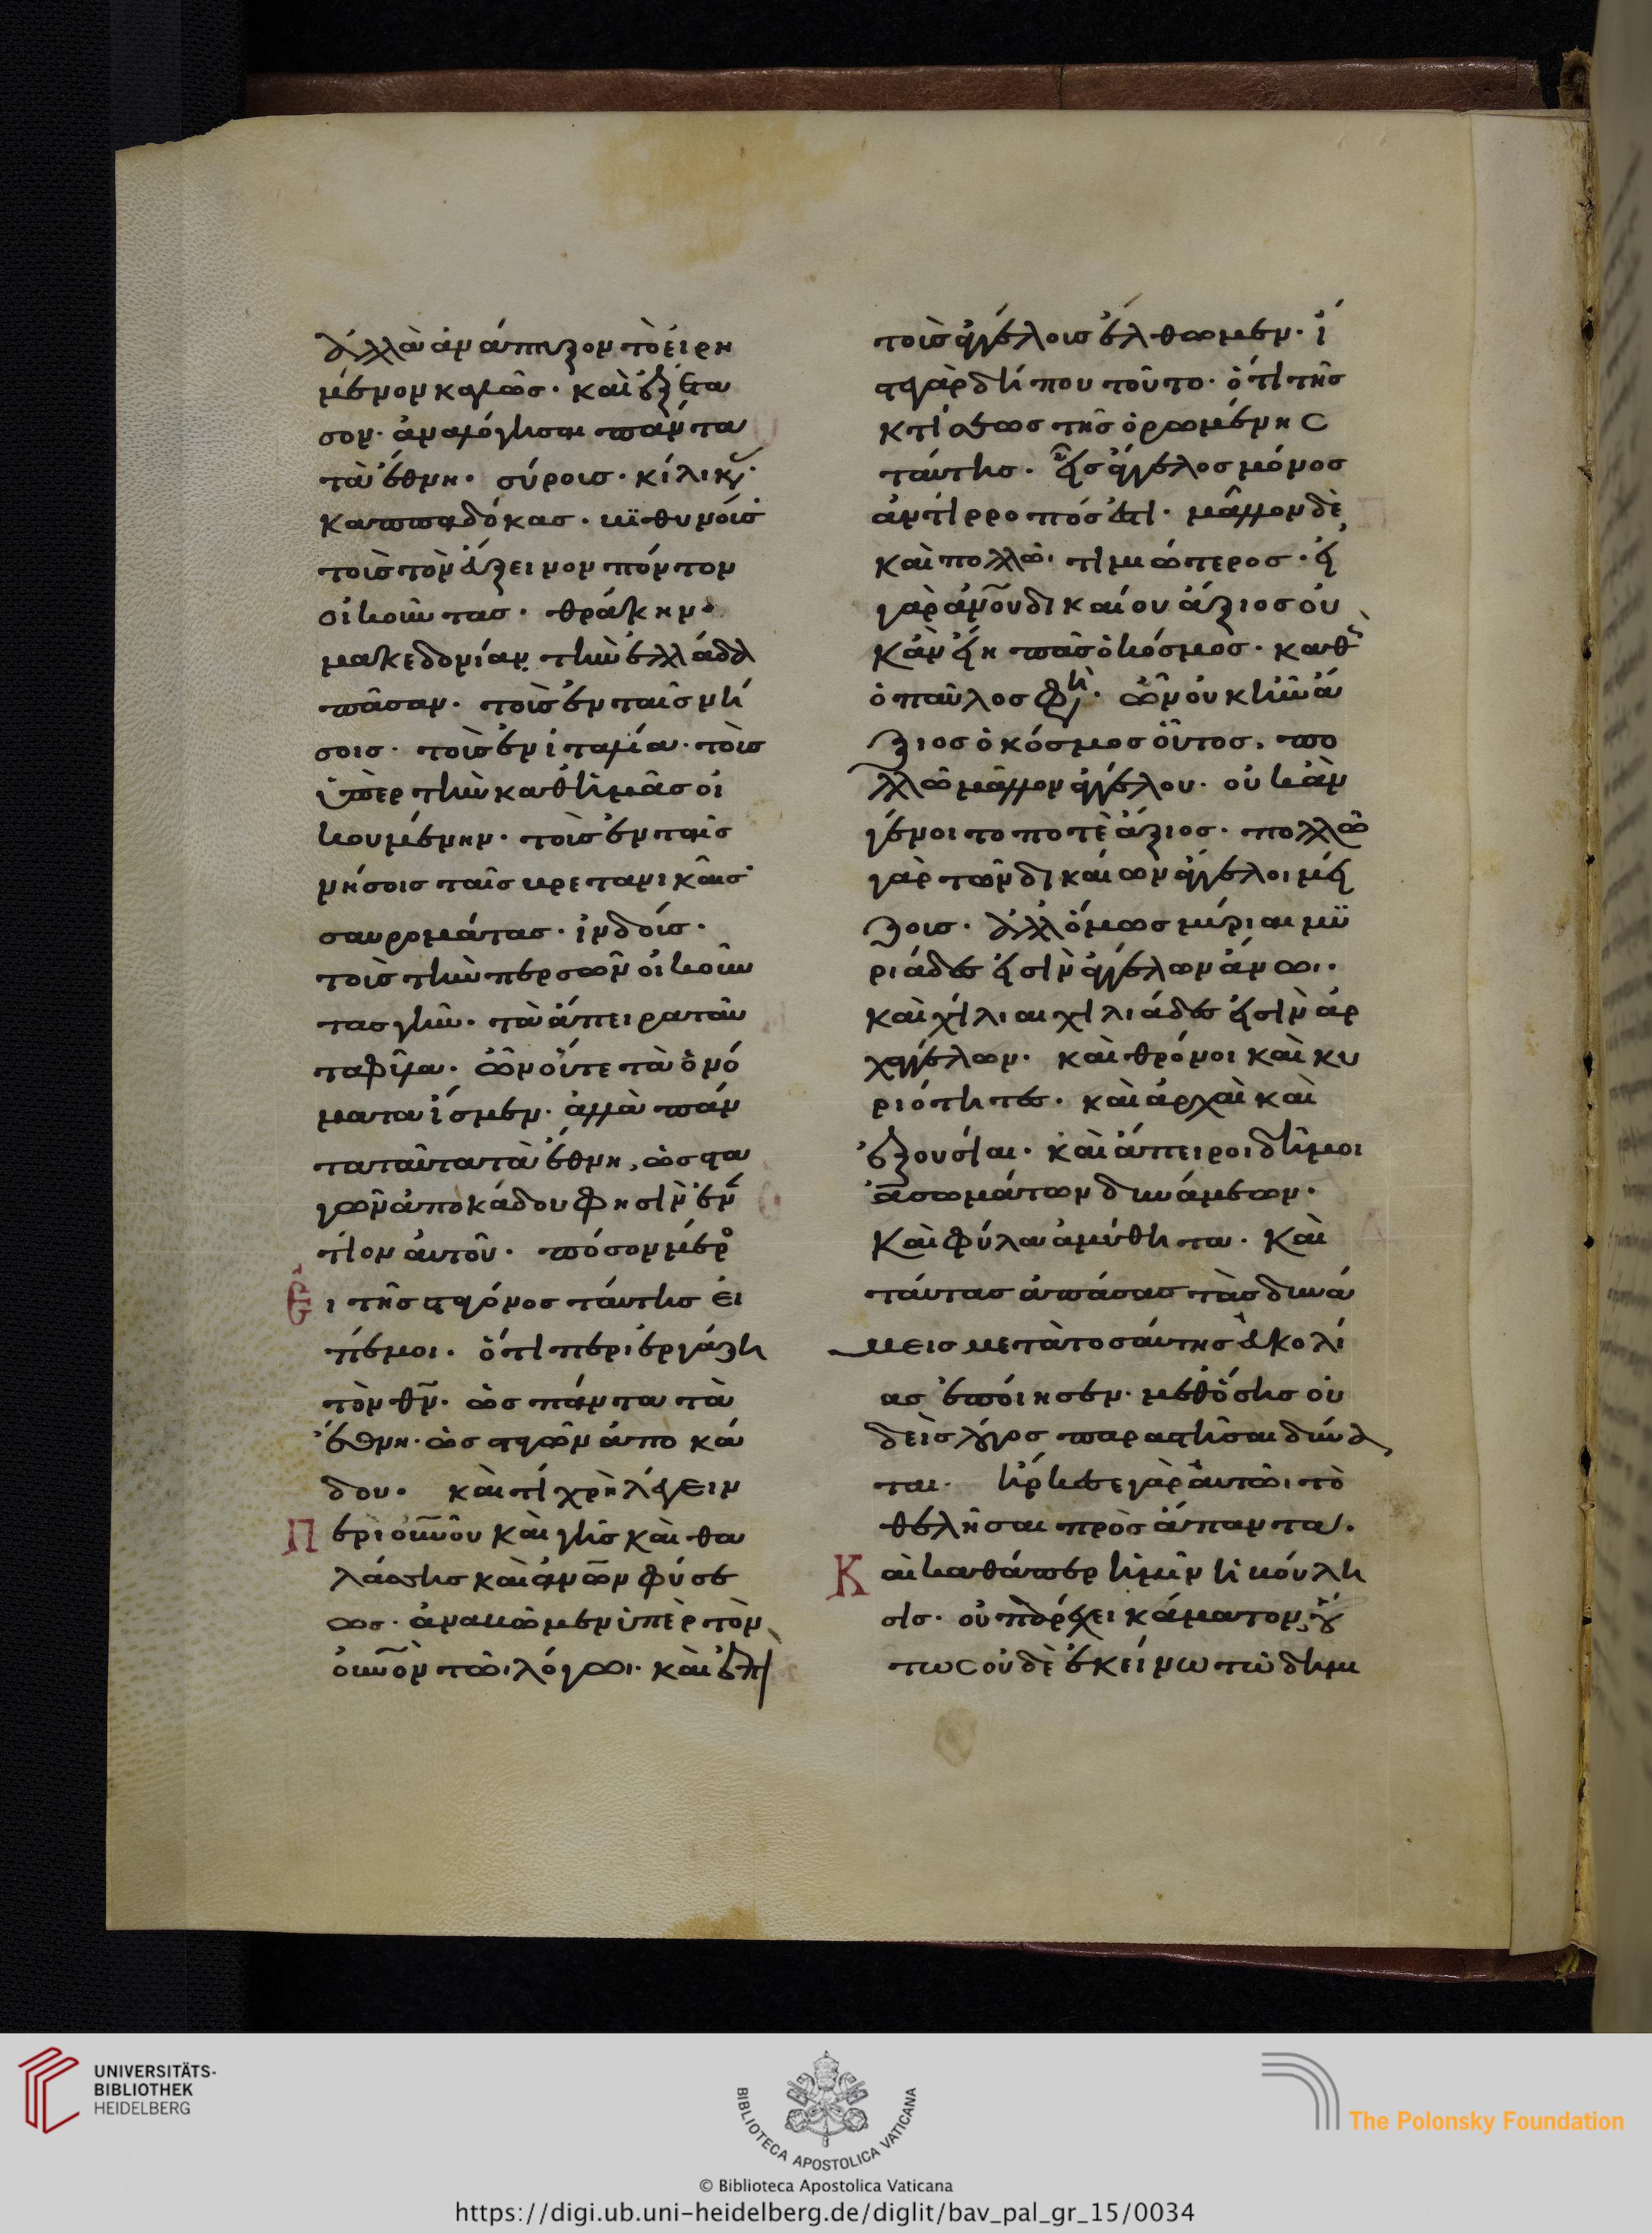 ἀλλὰ ἀνάπτυξον τὸ εἰρη
μένον καλῶς· καὶ ἐξέτα
σον· ἀναλόγησαι πάντα
τὰ ἔθνη· σύροις· κίλικ
καππαδόκας· βϊθυνοίς
τοὶς τὸν ἄξεινον πόντον
οἰκοῦντας· θράκην·
μακεδονίαν τὴν ἑλλάδα
πᾶσαν· τοὶς ἐν ταῖς νή
σοις· τοὶς ἐν ἰταλία· τοὶς
ὑπὲρ τὴν καθ ἡμᾶς οἰ
κουμένην· τοὶς ἐν ταῖς
νήσοις ταῖς βρετανικαῖς·
σαυρομάτας· ἰνδοίς·
τοὶς τὴν περσῶν οἰκοῦν
τας γῆν· τὰ ἄπειρα ταῦ
τα φῦλα· ὧν οὔτε τὰ ὀνό
ματα ἴσμεν· ἀλλὰ πάν
τα ταῦτα τὰ ἔθνη, ὡς στα
γὼν ἀπο κάδου φησὶν ἐν
τίον αὐτοῦ· πόσον μέρ
ι τῆς σταγόνος ταύτης εἰ
πέ μοι· ὅτι περιεργάζη
τὸν θν· ὡς πάντα τὰ
ἔθνη· ὡς σταγὼν ἀπο κά
δου· καὶ τί χρὴ λέγειν
περὶ οὐνοῦ καὶ γῆς καὶ θα
λάσσης καὶ ἀνων φύσε
ως· ἀναβῶμεν ὑπὲρ τὸν
οὐνὸν τῶι λόγωι· καὶ ἐπὶ
τοὶς ἀγγέλοις ἔλθωμεν· ἴ
στε γὰρ δήπου τοῦτο· ὅτι τῆς
κτίσεως τῆς ὁρωμένης
ταύτης· εἷς ἄγγελος μόνος
ἀντίρροπός ἐστι· μᾶλλον δὲ
καὶ πολλῶ τιμιώτερος· εἰ
γὰρ ἀνου δικαίου ἄξιος οὐ
κὰν εἴη πᾶς ὁ κόσμος· καθὼ
ὁ παῦλος φη· ὧν οὐκ ἦν ἄ
ξιος ὁ κόσμος οὗτος· πο
λλῶ μᾶλλον ἀγγέλου· οὐκ ἂν
γένοιτο ποτὲ ἄξιος· πολλῶ
γὰρ τῶν δικαίων ἄγγελοι μεί
ζοις· ἀλλ ὅμως μύριαι μϋ
ριάδες εἰσὶν ἀγγέλων ἄνωι·
καὶ χίλιαι χιλιάδες εἰσὶν ἀρ
χαγγέλων· καὶ θρόνοι καὶ κυ
ριότητες· καὶ ἀρχαὶ καὶ
ἐξουσίαι· καὶ ἄπειροι δῆμοι
ἀσωμάτων δυνάμεων·
καὶ φύλα ἀμύθητα· καὶ
ταύτας ἁπάσας τὰς δυνά
μεις μετὰ τοσαύτης εὐκολί
ας ἐποίησεν· μεθ ὅσης οὐ
δεὶς λόγος παραστῆσαι δύνα
ται· ἤρκεσε γὰρ αὐτῶι τὸ
θελῆσαι πρὸς ἅπαντα·
Καὶ καθάπερ ἡμῖν ἡ βούλη
σις· οὐ παρέχει κάματον, οὕ
τως οὐδὲ ἐκείνω τὸ δημι
UNIVERSITÄTS-
BIBLIOTHEK
HEIDELBERG
BIBLIOTECA APOSTOLICA VATICANA
The Polonsky Foundation
© Biblioteca Apostolica Vaticana
https://digi.ub.uni-heidelberg.de/diglit/bav_pal_gr_15/0034